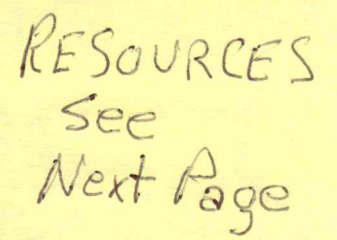 RESOURCES
See
Next Page